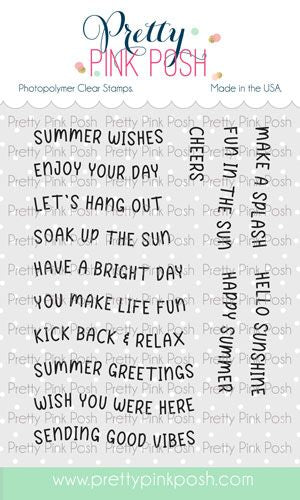 Pretty
PINK POSH
Photopolymer Clear Stamps.
Made in the USA.
SUMMER WISHES
ENJOY YOUR DAY
LET'S HANG OUT
SOAK UP THE SUN
HAVE A BRIGHT DAY
YOU MAKE LIFE FUN
KICK BACK & RELAX
SUMMER GREETINGS
WISH YOU WERE HERE
SENDING GOOD VIBES
CHEERS
FUN IN THE SUN
MAKE A SPLASH
HAPPY SUMMER
HELLO SUNSHINE
Pretty Pink Posh
www.prettypinkposh.com